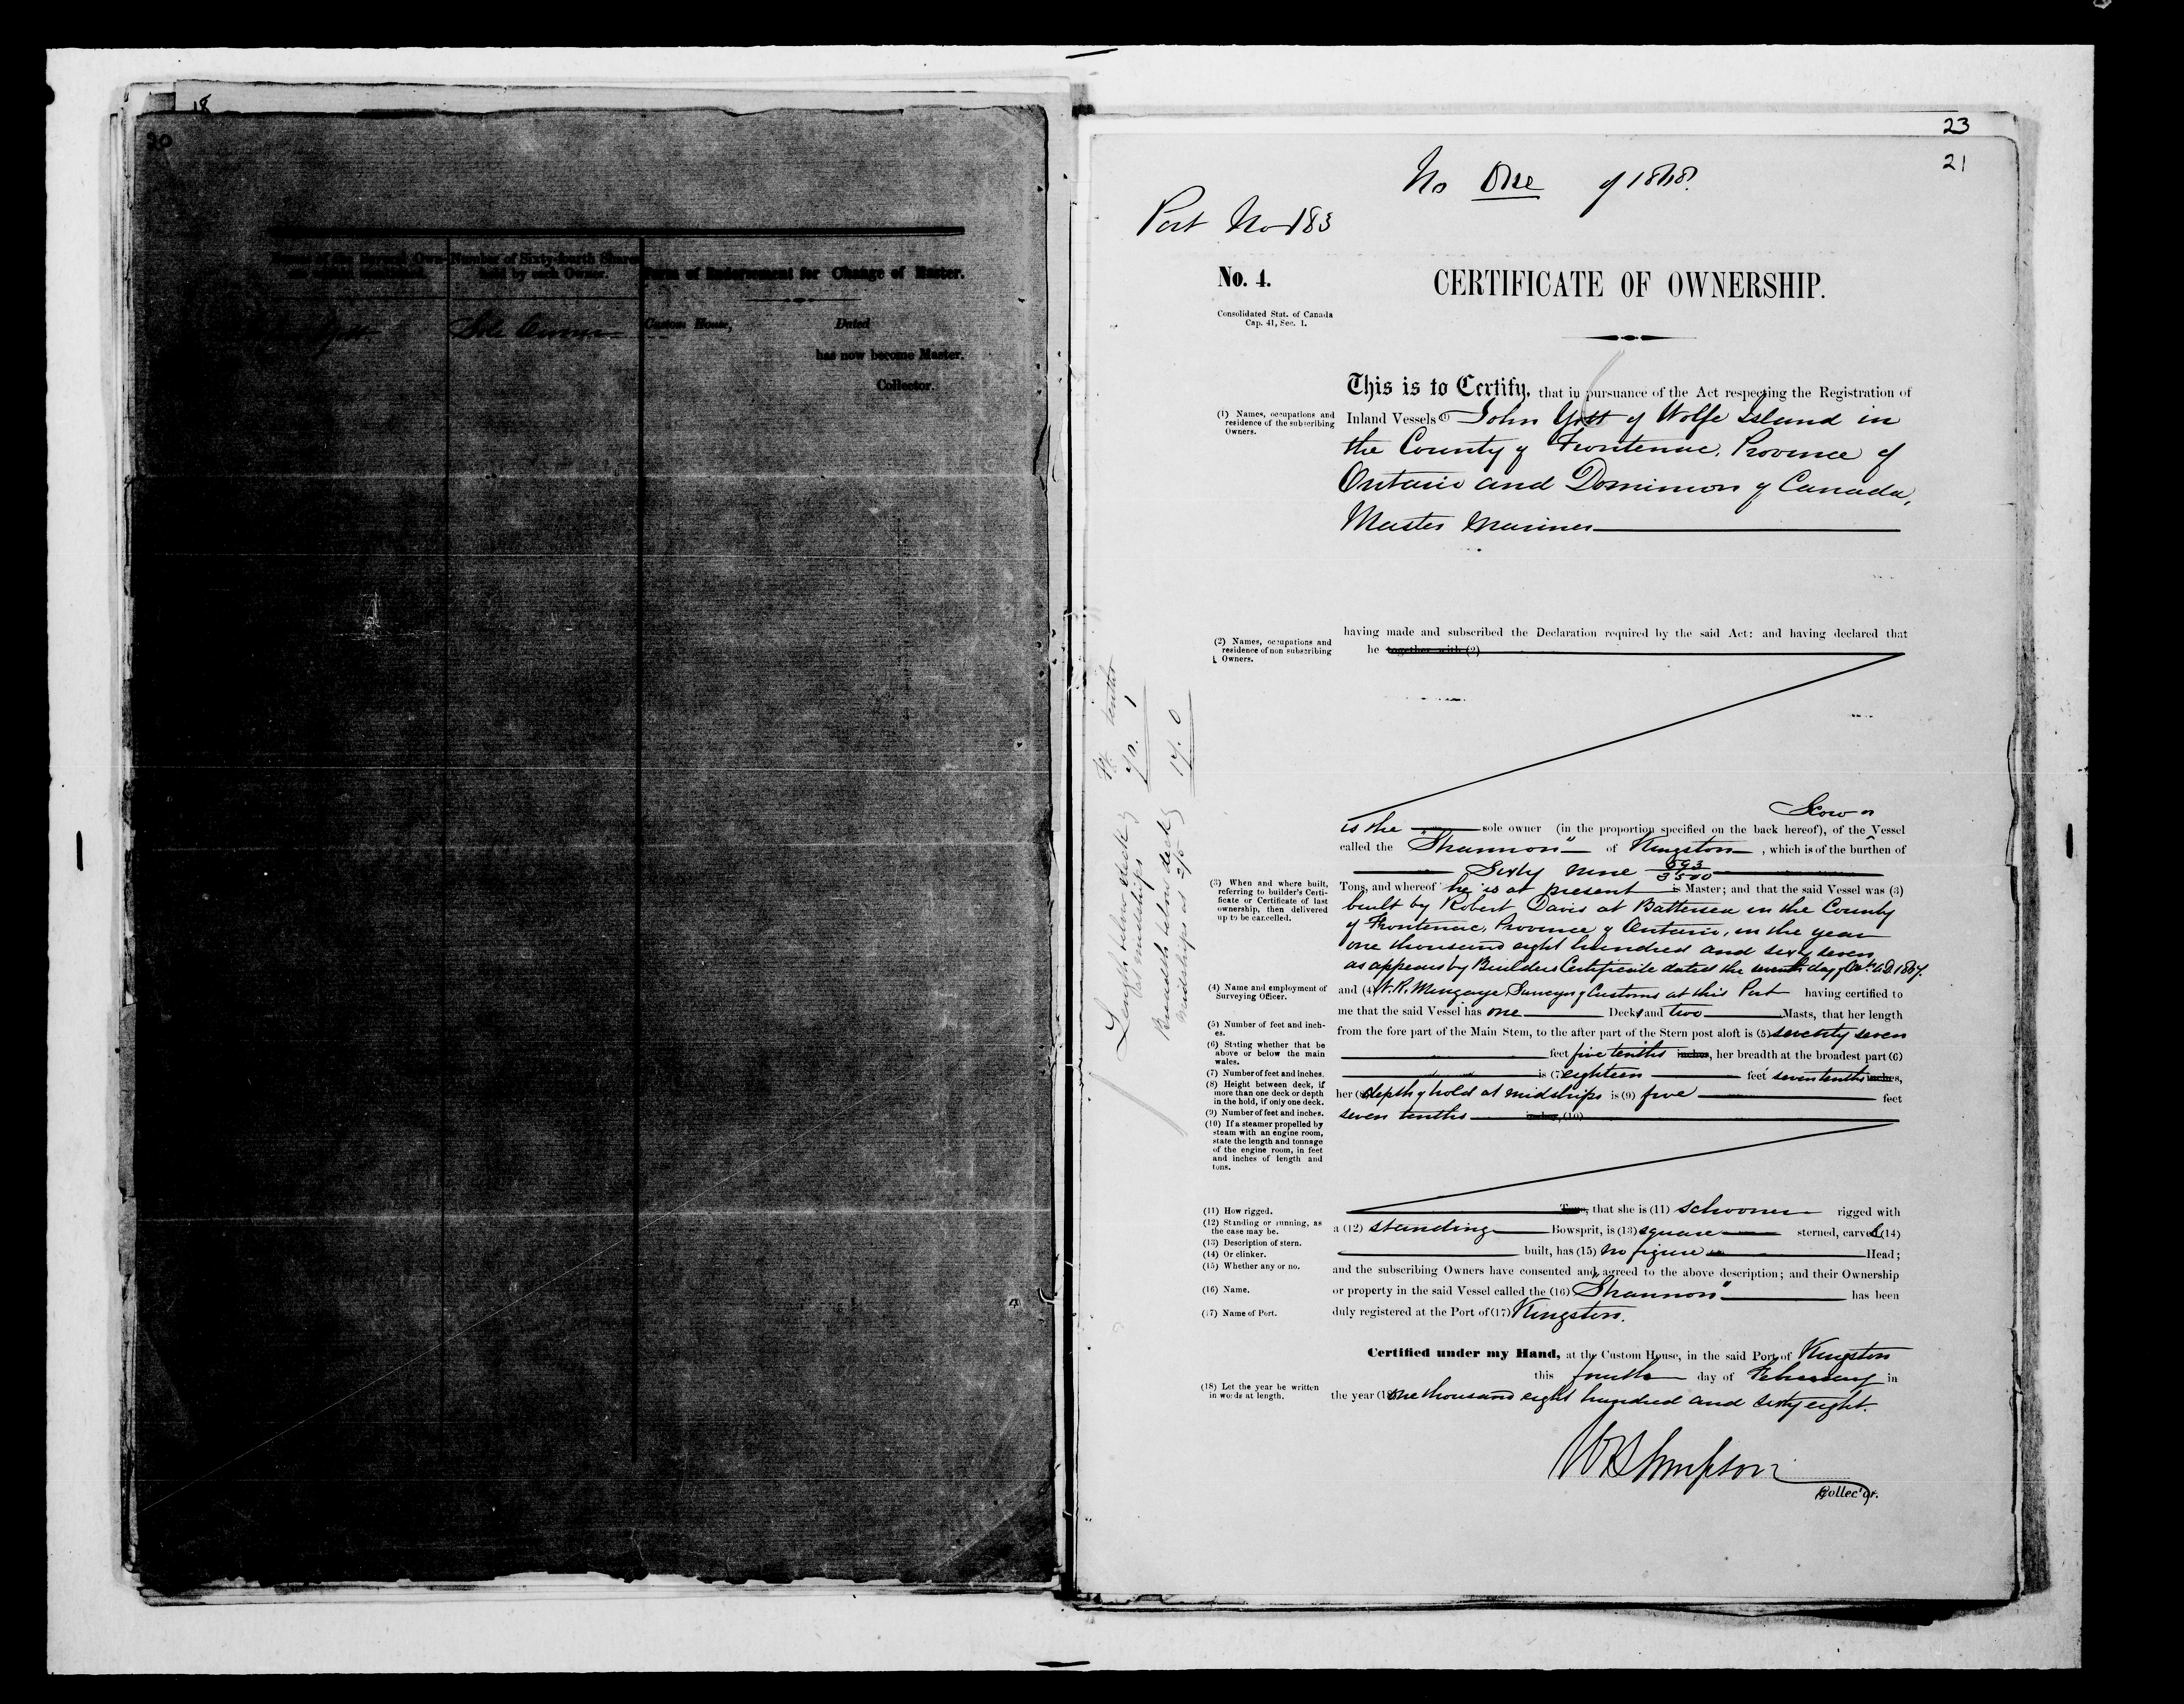 18
20
Names of the Several Own-
ers within mentioned.
Number of Sixty-fourth Shares
held by each Owner.
Form of Endorsement for Change of Master.
Sole Owner
Custom House, Dated
has now become Master.
Collector.
23
21
No One of 1868.
Port No 183
No. 4.
CERTIFICATE OF OWNERSHIP.
Consolidated Stat. of Canada
Cap. 41, Sec. 1.
This is to Certify, that in pursuance of the Act respecting the Registration of
(1) Names, occupations and
residence of the subscribing
Owners.
Inland Vessels (1) John Yott of Wolfe Island in
the County of Frontenac, Province of
Ontario and Dominion of Canada,
Master Mariner
having made and subscribed the Declaration required by the said Act: and having declared that
(2) Names, occupations and
residence of non subscribing
Owners.
he together with (2)
Scow or
is the sole owner (in the proportion specified on the back hereof), of the Vessel
called the "Shannon" of Kingston, which is of the burthen of
Sixty nine 593/3500
(3) When and where built,
referring to builder's Certi-
ficate or Certificate of last
ownership, then delivered
up to be cancelled.
Tons, and whereof he is at present is Master; and that the said Vessel was (3)
built by Robert Davis at Battersea in the County
of Frontenac, Province of Ontario, in the year
one thousand eight hundred and sixty seven
as appears by Builders Certificate dated the seventh day of Octr. A.D. 1867.
(4) Name and employment of
Surveying Officer.
and (4) W. R. Mingaye, Surveyor of Customs at this Port having certified to
me that the said Vessel has one Decks and two Masts, that her length
(5) Number of feet and inch-
es.
from the fore part of the Main Stem, to the after part of the Stern post aloft is (5) seventy seven
(6) Stating whether that be
above or below the main
wales.
feet five tenths inches, her breadth at the broadest part (6)
(7) Number of feet and inches.
is (7) eighteen feet seven tenths inches,
(8) Height between deck, if
more than one deck or depth
in the hold, if only one deck.
her (8) depth of hold at midships is (9) five feet
(9) Number of feet and inches.
seven tenths inches, (10)
(10) If a steamer propelled by
steam with an engine room,
state the length and tonnage
of the engine room, in feet
and inches of length and
tons.
Length below deck
at midships
Ft. tenths
70. 1
Breadth below deck
midships at 2/5
17. 0
(11) How rigged.
Tons, that she is (11) schooner rigged with
(12) Standing or running, as
the case may be.
a (12) standing Bowsprit, is (13) square sterned, carvel (14)
(13) Description of stern.
(14) Or clinker.
built, has (15) no figure Head;
(15) Whether any or no.
and the subscribing Owners have consented and agreed to the above description; and their Ownership
(16) Name.
or property in the said Vessel called the (16) "Shannon" has been
(17) Name of Port.
duly registered at the Port of (17) Kingston.
Certified under my Hand, at the Custom House, in the said Port of Kingston
this fourth day of February in
(18) Let the year be written
in words at length.
the year (18) one thousand eight hundred and sixty eight.
W R Simpson
Collector.